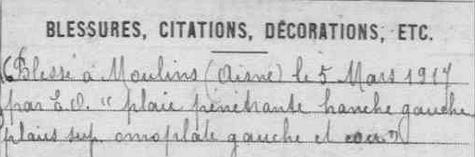 BLESSURES, CITATIONS, DÉCORATIONS, ETC.
Blessé à Moulins (Aisne) le 5 Mars 1917
par E.O. " plaie pénétrante hanche gauche
plaies sup. omoplate gauche et